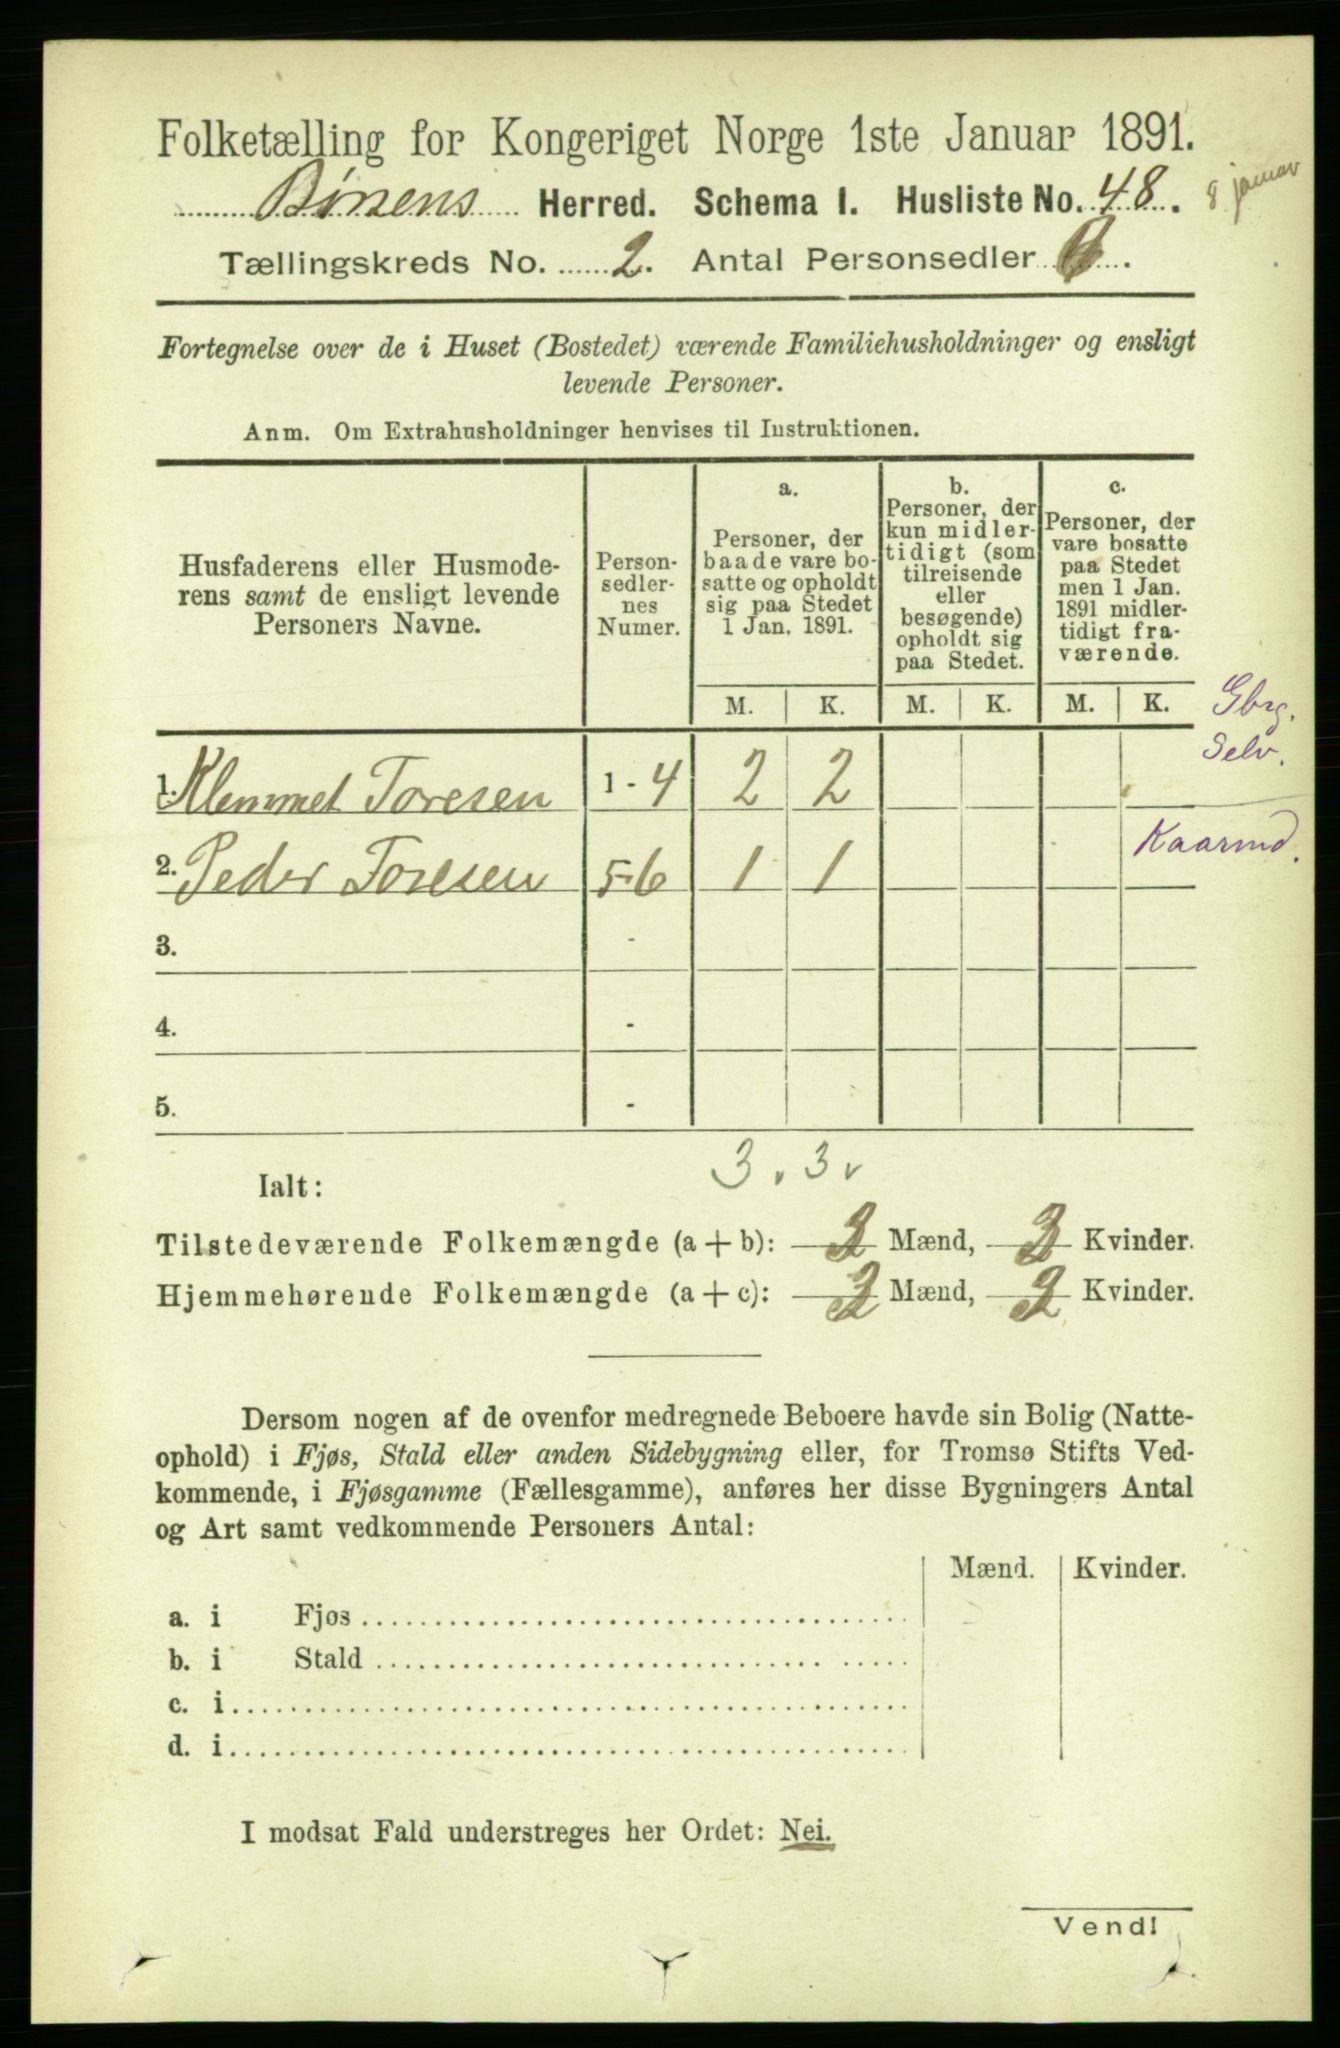 Folketælling for Kongeriget Norge 1ste Januar 1891.
Børsens Herred. Schema 1. Husliste No. 48.
8 januar
Tællingskreds No. 2. Antal Personsedler 6.
Fortegnelse over de i Huset (Bostedet) værende Familiehusholdninger og ensligt
levende Personer.
Anm. Om Extrahusholdninger henvises til Instruktionen.
Husfaderens eller Husmode-
rens samt de ensligt levende
Personers Navne.
Person-
sedler-
nes
Numer.
a.
Personer, der
baade vare bo-
satte og opholdt
sig paa Stedet
1 Jan. 1891.
b.
Personer, der
kun midler-
tidigt (som
tilreisende
eller
besøgende)
opholdt sig
paa Stedet.
c.
Personer, der
vare bosatte
paa Stedet
men 1 Jan.
1891 midler-
tidigt fra-
værende.
M. K. M. K. M. K.
Gbrg.
Selv.
1. Klemmet Toresen 1 - 4 2 2
2. Peder Toresen 5-6 1 1
Kaarmd.
3. -
4. -
5. -
3. 3.
Ialt:
Tilstedeværende Folkemængde (a + b): 3 Mænd, 3 Kvinder.
Hjemmehørende Folkemængde (a + c): 3 Mænd, 3 Kvinder.
Dersom nogen af de ovenfor medregnede Beboere havde sin Bolig (Natte-
ophold) i Fjøs, Stald eller anden Sidebygning eller, for Tromsø Stifts Ved-
kommende, i Fjøsgamme (Fællesgamme), anføres her disse Bygningers Antal
og Art samt vedkommende Personers Antal:
Mænd. Kvinder.
a. i Fjøs
b. i Stald
c. i
d. i
I modsat Fald understreges her Ordet: Nei.
Vend!